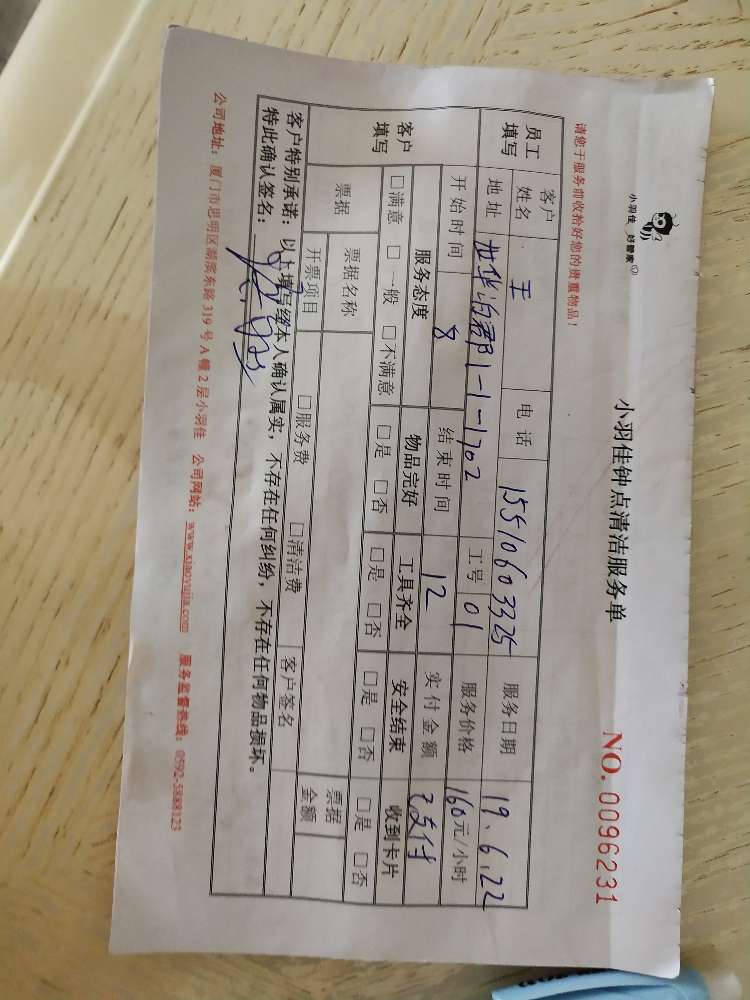 小羽佳 好管家
小羽佳钟点清洁服务单
NO. 0096231
请您于服务前收拾好您的贵重物品！
员工填写 客户姓名 王 电话 15510603325 服务日期 19.6.22
地址 世华泊郡1-1-1702 工号 01 服务价格 160元/小时
开始时间 8 结束时间 12 实付金额 已支付
客户填写 服务态度 物品完好 工具齐全 安全结束 收到卡片
□满意 □一般 □不满意 □是 □否 □是 □否 □是 □否 □是 □否
票据 票据名称 票据金额
开票项目 □服务费 □清洁费 客户签名
客户特别承诺：以上填写经本人确认属实，不存在任何纠纷，不存在任何物品损坏。
特此确认签名：
公司地址：厦门市思明区湖滨东路319号A幢2层小羽佳 公司网站：www.xiaoyujia.com 服务监督热线：0592-5888123